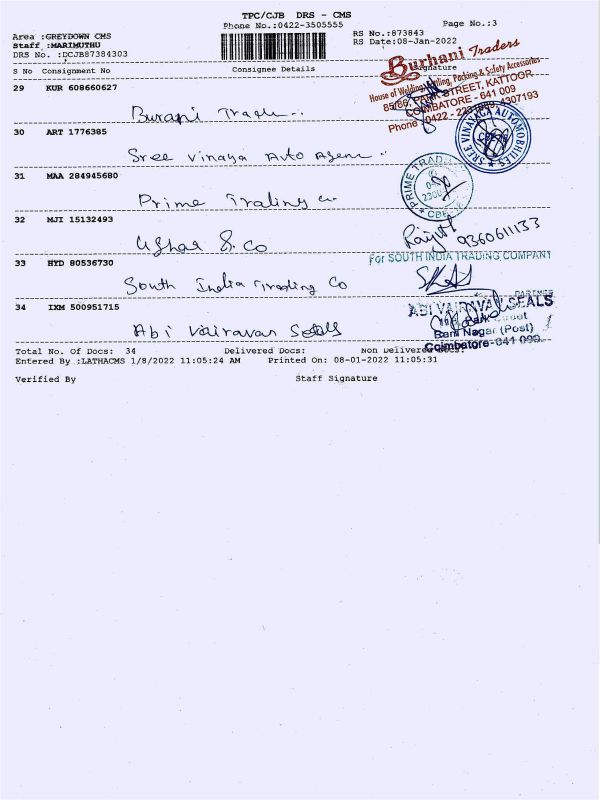 TPC/CJB DRS - CMS
Phone No.:0422-3505555
Page No.:3
Area :GREYDOWN CMS
RS No.:873843
Staff :MARIMUTHU
RS Date:08-Jan-2022
DRS No. :DCJB87384303
S No Consignment No Consignee Details Signature
Burhani Traders
House of Welding, Milling, Packing & Safety Accessories
85/86, PARK STREET, KATTOOR
COIMBATORE - 641 009
Phone : 0422 - 4307193
29 KUR 608660627
Burani Trade
30 ART 1776385
Sree Vinaya Auto Agenc
SREE VINAYAGA AUTOMOBILES
31 MAA 284945680
Prime Trading Co
PRIME TRAD
CBE
32 MJI 15132493
Ushar & Co
9360611133
33 HYD 80536730
South India Trading Co
For SOUTH INDIA TRADING COMPANY
PARTNER
34 IXM 500951715
Abi Vairavar Seals
ABI VAIRAVAR SEALS
Park Street
Ram Nagar (Post)
Coimbatore-641 009.
Total No. Of Docs: 34 Delivered Docs: Non Delivered Docs:
Entered By :LATHACMS 1/8/2022 11:05:24 AM Printed On: 08-01-2022 11:05:31
Verified By Staff Signature